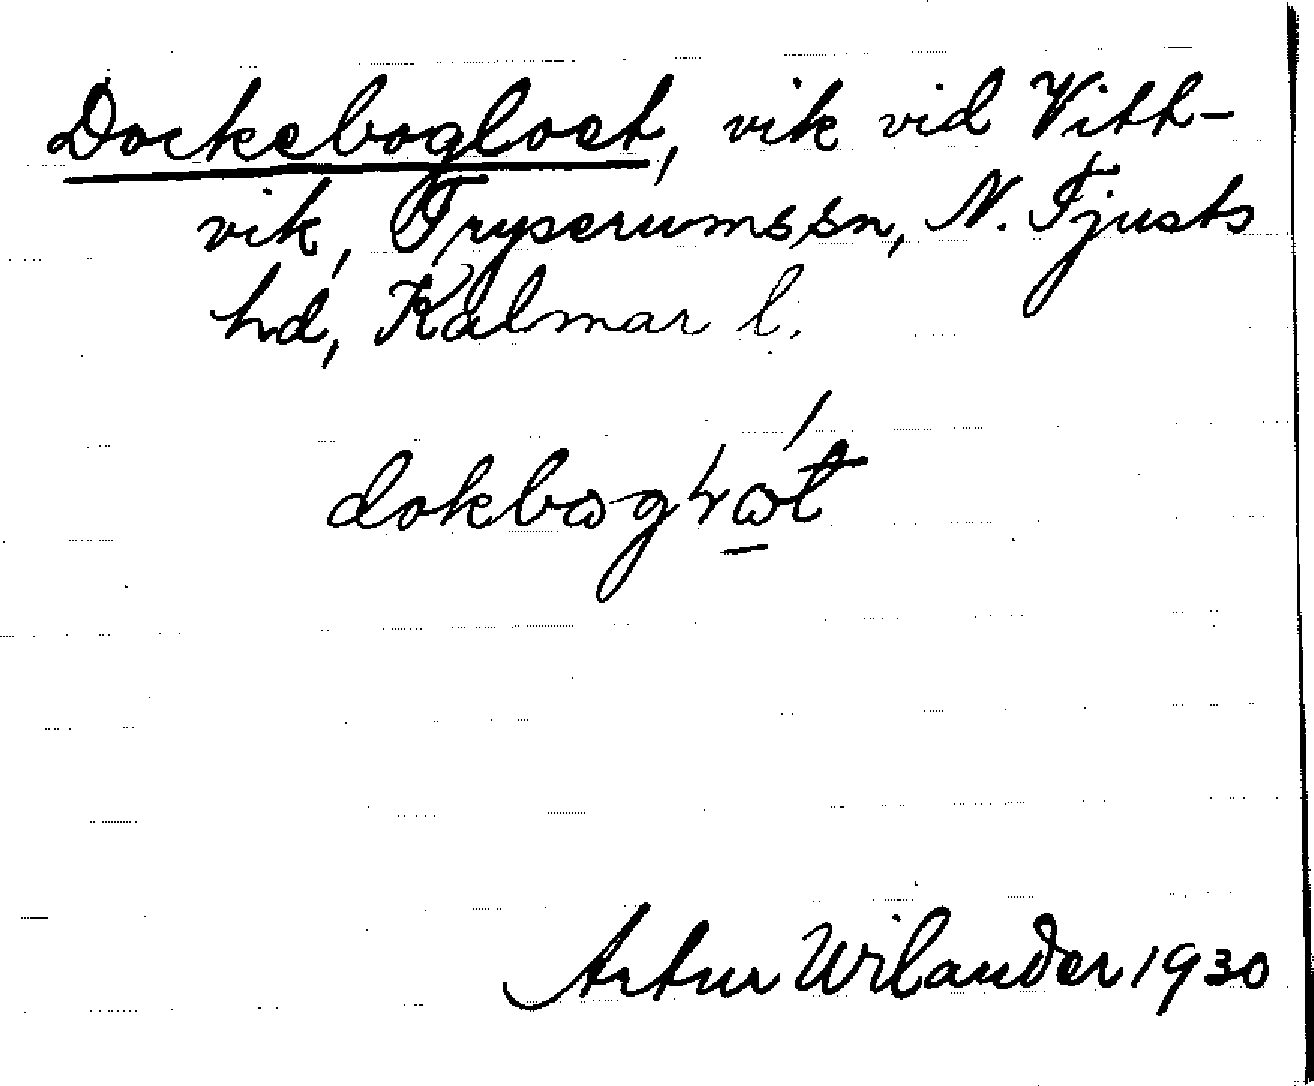 Dockebogloet, vik vid Vith-
vik, Tryserumssn, N. Tjusts
hd, Kalmar l.
Artur Wilander 1930